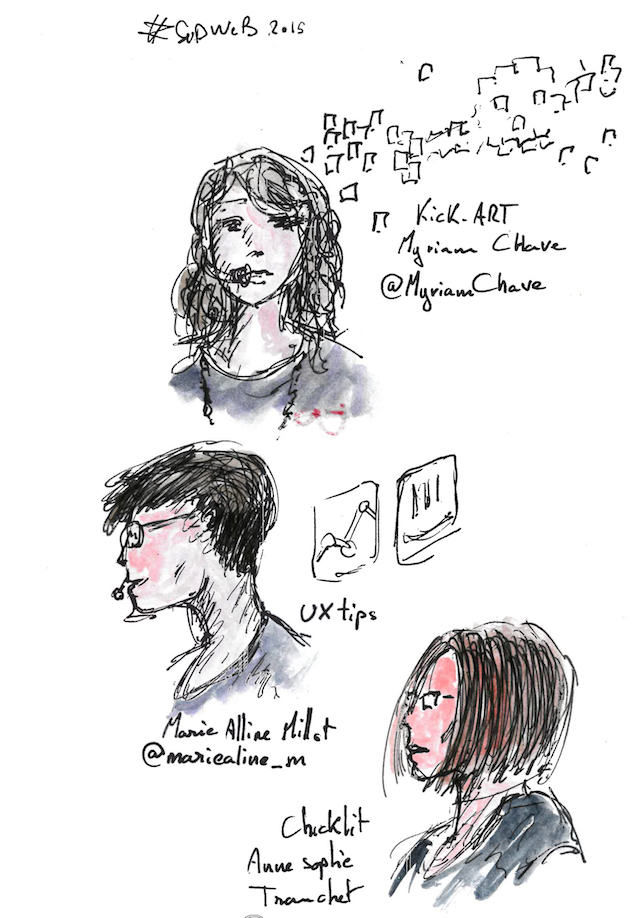 #SUDWEB 2015
Kick-ART
Myriam CHave
@MyriamChave
UX tips
Marie Alline Millot
@mariealine_m
Chicklit
Anne sophie
Tranchet